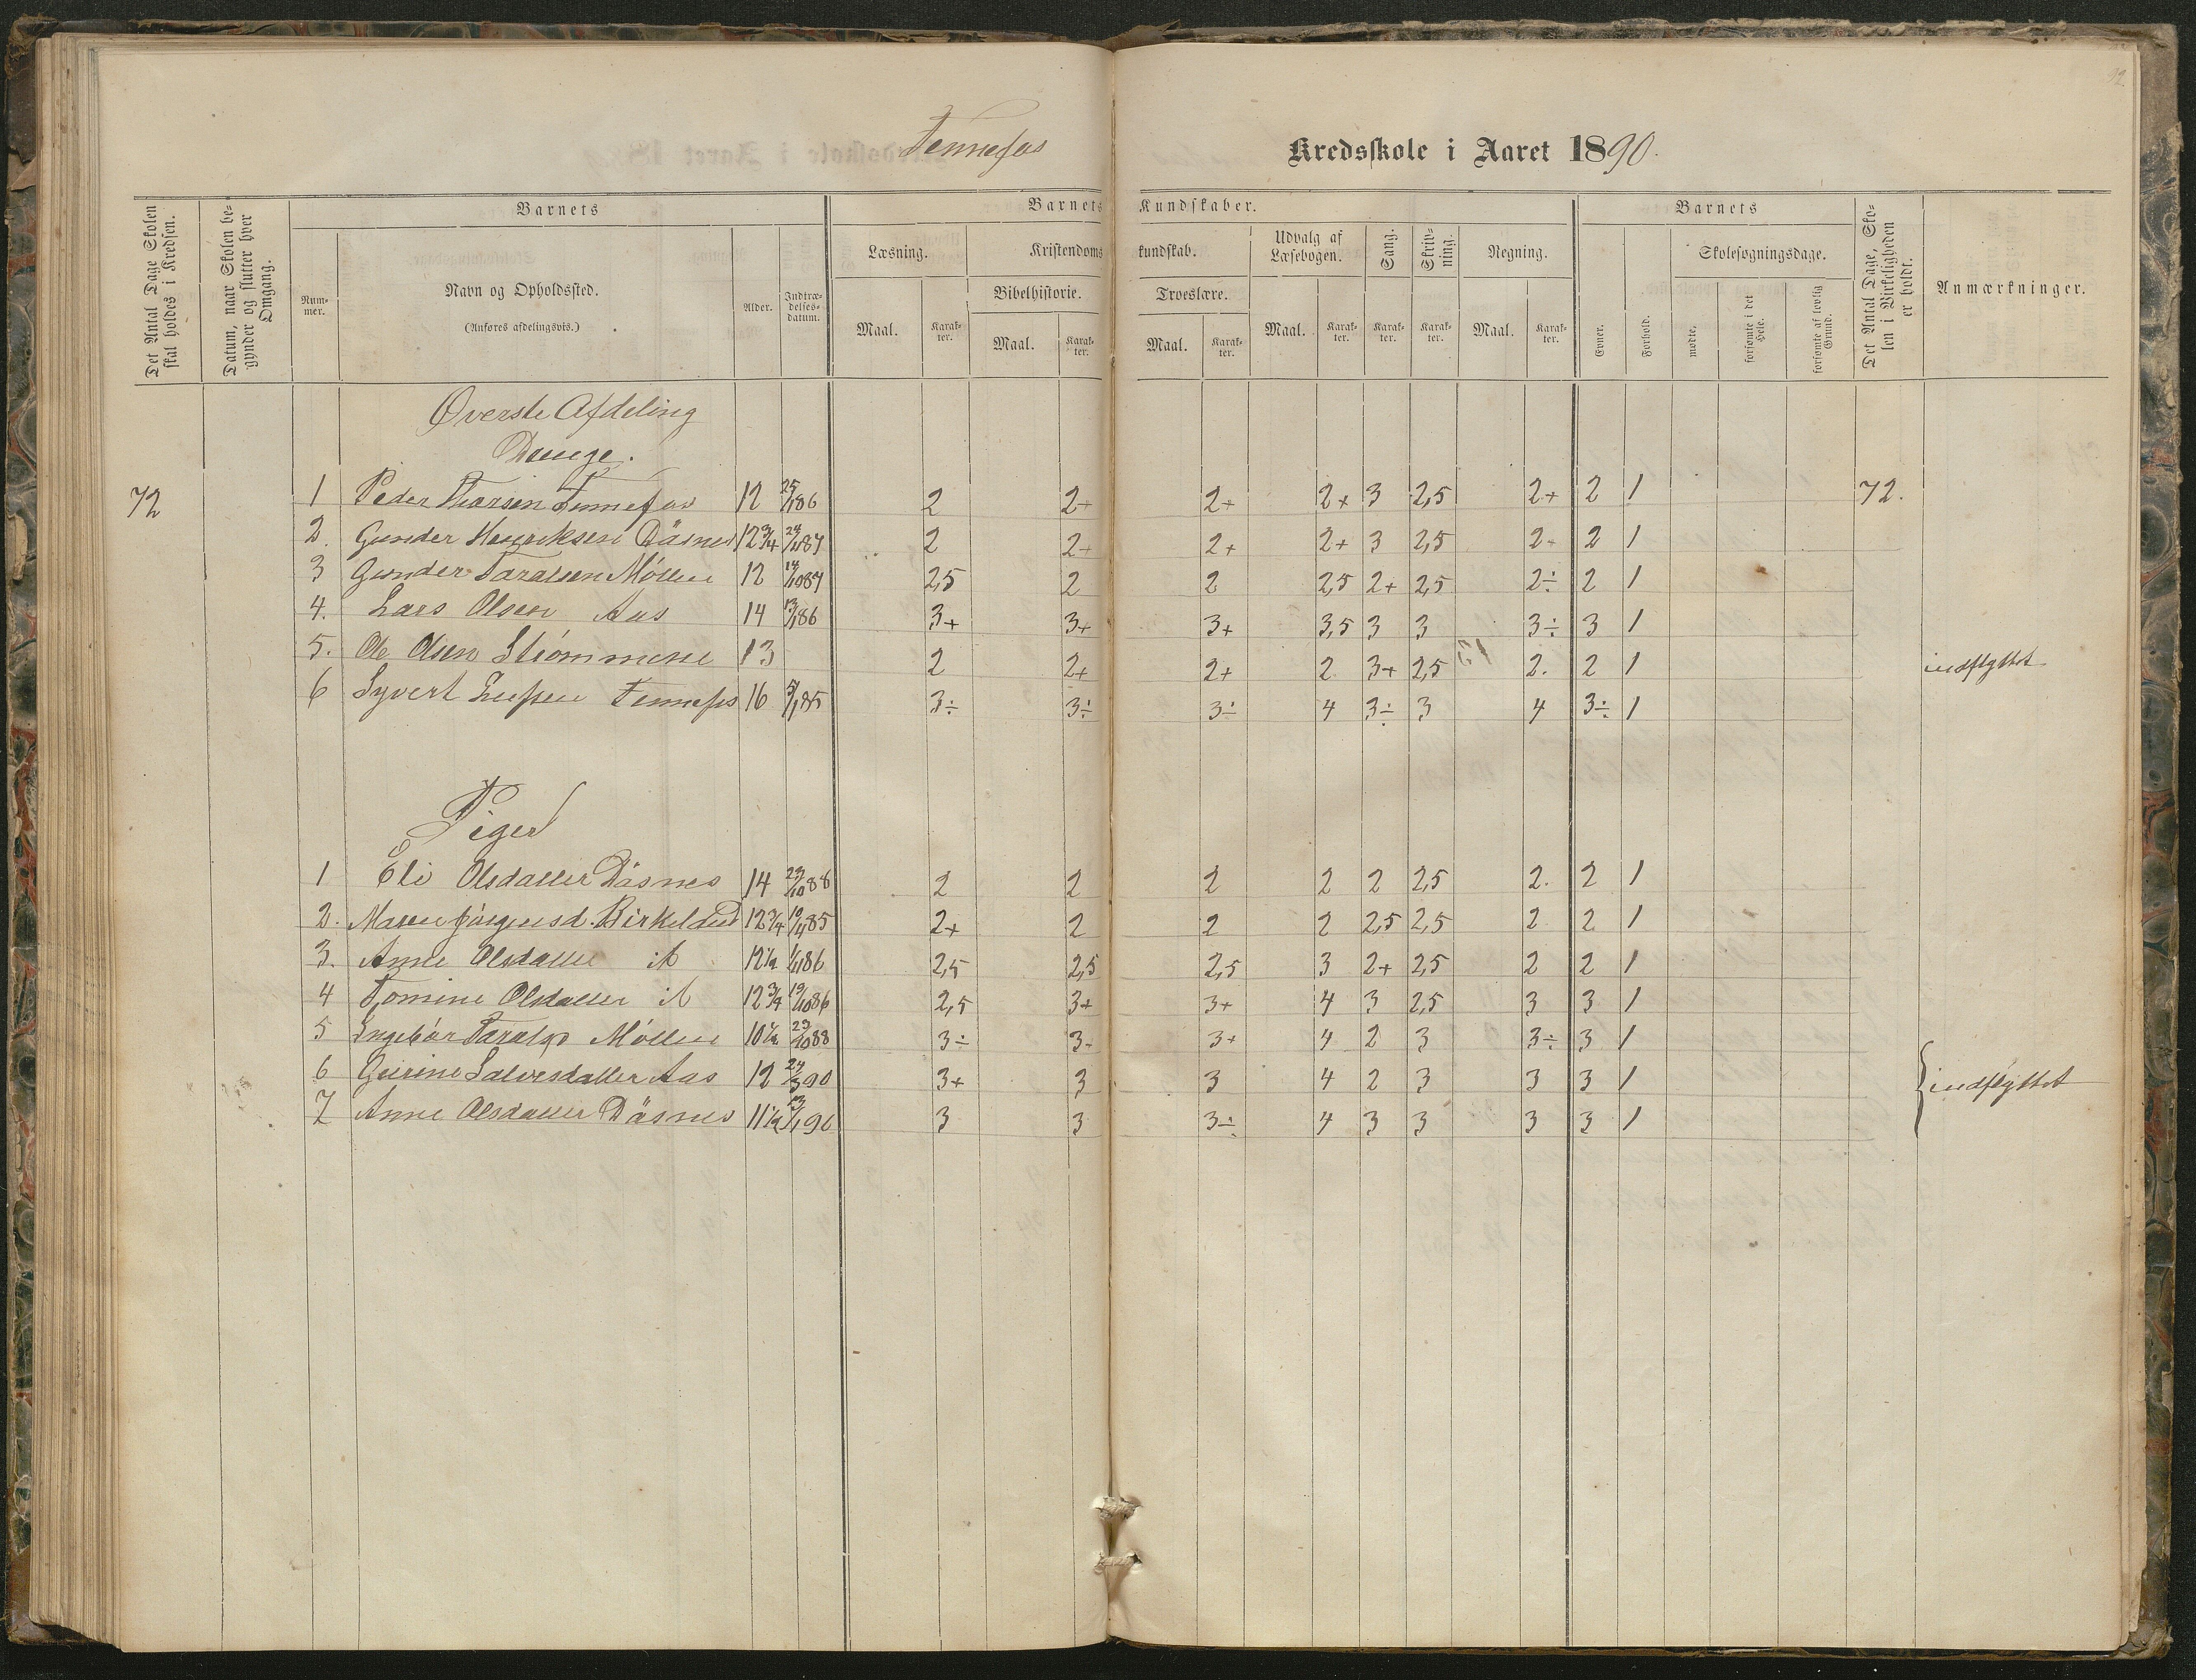 92
Fennefos Kredsskole i Aaret 1890.
Det Antal Dage Skolen skal holdes i Kredsen.
Datum, naar Skolen begynder og slutter hver Omgang.
Barnets
Nummer.
Navn og Opholdssted.
(Anføres afdelingsvis.)
Alder.
Indtrædelsesdatum.
Barnets Kundskaber.
Læsning.
Kristendomskundskab.
Udvalg af Læsebogen.
Sang.
Skrivning.
Regning.
Bibelhistorie.
Troeslære.
Maal. Karakter. Maal. Karakter. Maal. Karakter. Maal. Karakter. Karakter. Karakter. Maal. Karakter.
Barnets
Evner.
Forhold.
Skolesøgningsdage.
mødte.
forsømte i det Hele.
forsømte af lovlig Grund.
Det Antal Dage, Skolen i Virkeligheden er holdt.
Anmærkninger.
Øverste Afdeling
Drenge.
72 1 Peder Fennefos 12 25/1 86 2 2+ 2+ 2+ 3 2,5 2+ 2 1 72.
2. Gunder Henriksen Dåsnes 12 3/4 2 2+ 2+ 2+ 3 2,5 2+ 2 1
3 Gunder Taralsen Møllen 12 14/10 87 2,5 2 2 2,5 2+ 2,5 2÷ 2 1
4. Lars Olsen Aas 14 13/1 86 3+ 3+ 3+ 3,5 3 3 3÷ 3 1
5. Ole Olsen Strømmene 13 2 2+ 2+ 2 3+ 2,5 2. 2 1 indflyttet
6 Syvert Fennefos 16 5/1 85 3÷ 3÷ 3÷ 4 3÷ 3 4 3÷ 1
Piger
1 Eli Olsdatter Dåsnes 14 29/10 88 2 2 2 2 2 2,5 2. 2 1
2. Maren Jørgensd. Birkeland 12 3/4 2+ 2 2 2 2,5 2,5 2 2 1
3. Anne Olsdatter 12 1/2 2,5 2,5 2,5 3 2+ 2,5 2 2 1
4 Tomine Olsdatter 12 3/4 19/10 86 2,5 3+ 3+ 4 3 2,5 3 3 1
5 Ingebor Taralsd Møllen 10 1/2 29/10 88 3÷ 3+ 3+ 4 2 3 3÷ 3 1
6 Gurine Salvesdatter Aas 12 24/3 90 3+ 3 3 4 2 3 3 3 1 indflyttet
7 Anne Olsdatter Dåsnes 11 1/2 13/1 90 3 3 3÷ 4 3 3 3 3 1